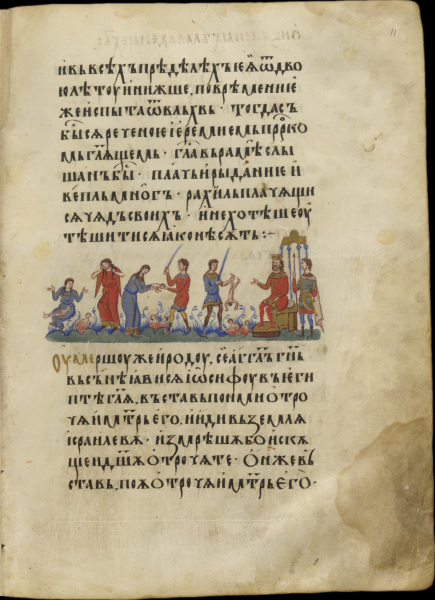 11
и въ всѣхъ прѣдѣлѣхъ іеѧ ѿ дво
ю лѣтоу и нижше, по врѣмени и
же испыта ѿ влъхвь · тогда съ
бысѧ реченое іереміемь прⷪ҇рко
мь гл҃ѧщемь · гла въ рамѣ слы
шанъ бы · плачь и рыданіе и
въпль многъ · рахиль плачѧщи
сѧ чѧдъ своихъ · и не хотѣше оу
тѣшитисѧ ꙗко не сѫть :~
Оумершоу же иродоу, се агг҃лъ гн҃ь
въ снѣ ꙗвисѧ іѡсифоу въ еги
птѣ гл҃ѧ, въставь поими отро
чѧ и мт҃рь его, и иди въ землѧ
ісраилевѫ · измрѣшѫ бо искѫ
щеи дш҃ѫ отрочѧте · онже въ
ставь, поѧ отрочѧ и мт҃рь его ·